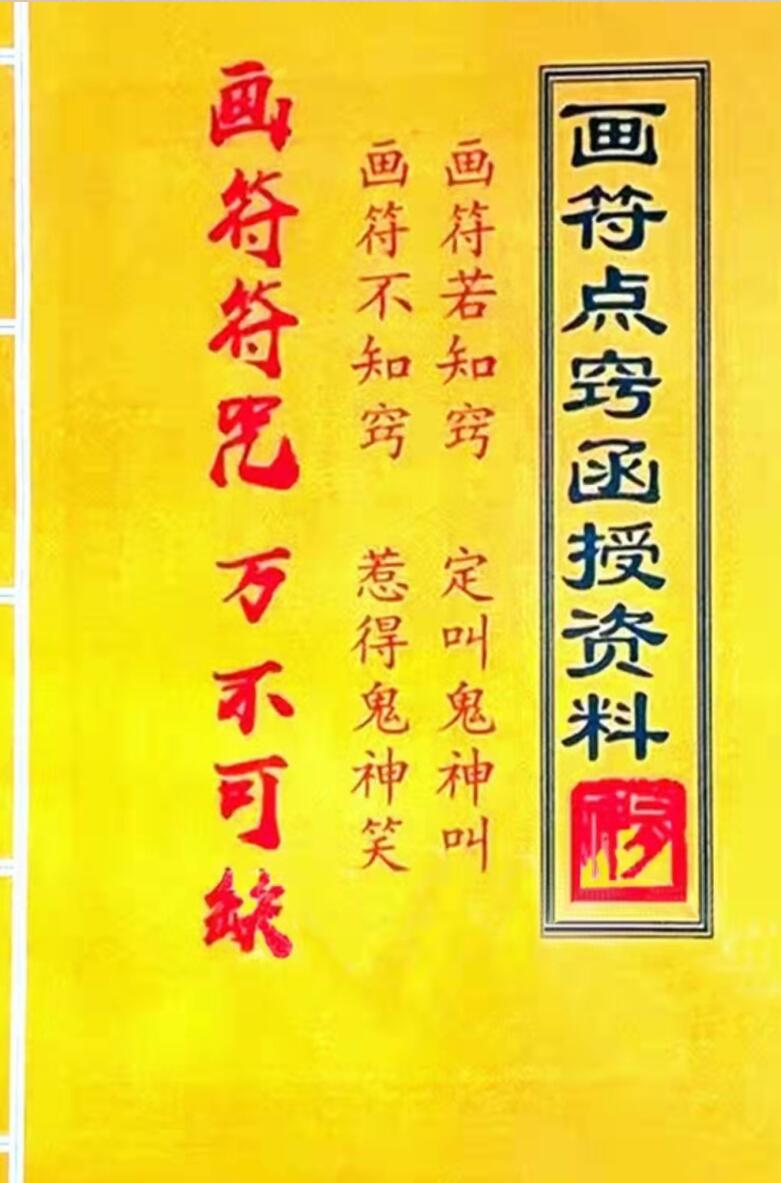 画符点窍函授资料
画符若知窍 定叫鬼神叫
画符不知窍 惹得鬼神笑
画符符咒 万不可缺